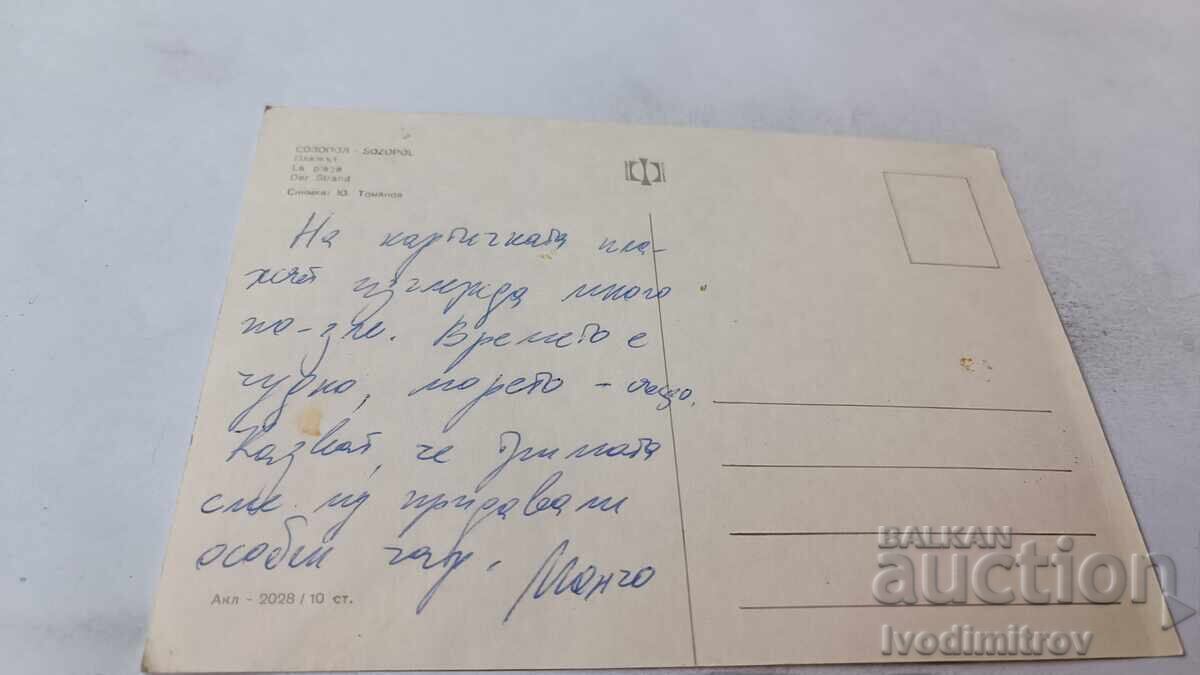 СОЗОПОЛ - SOZOPOL
Плажът
La plage
Der Strand
Снимка: Ю. Томанов
На картичката пла-
жът изглежда много
по-зле. Времето е
чудно, морето - също.
Казват, че тримата
сме му придавали
особен чар. Манчо
Акл - 2028 / 10 ст.
BALKAN
auction
Ivodimitrov